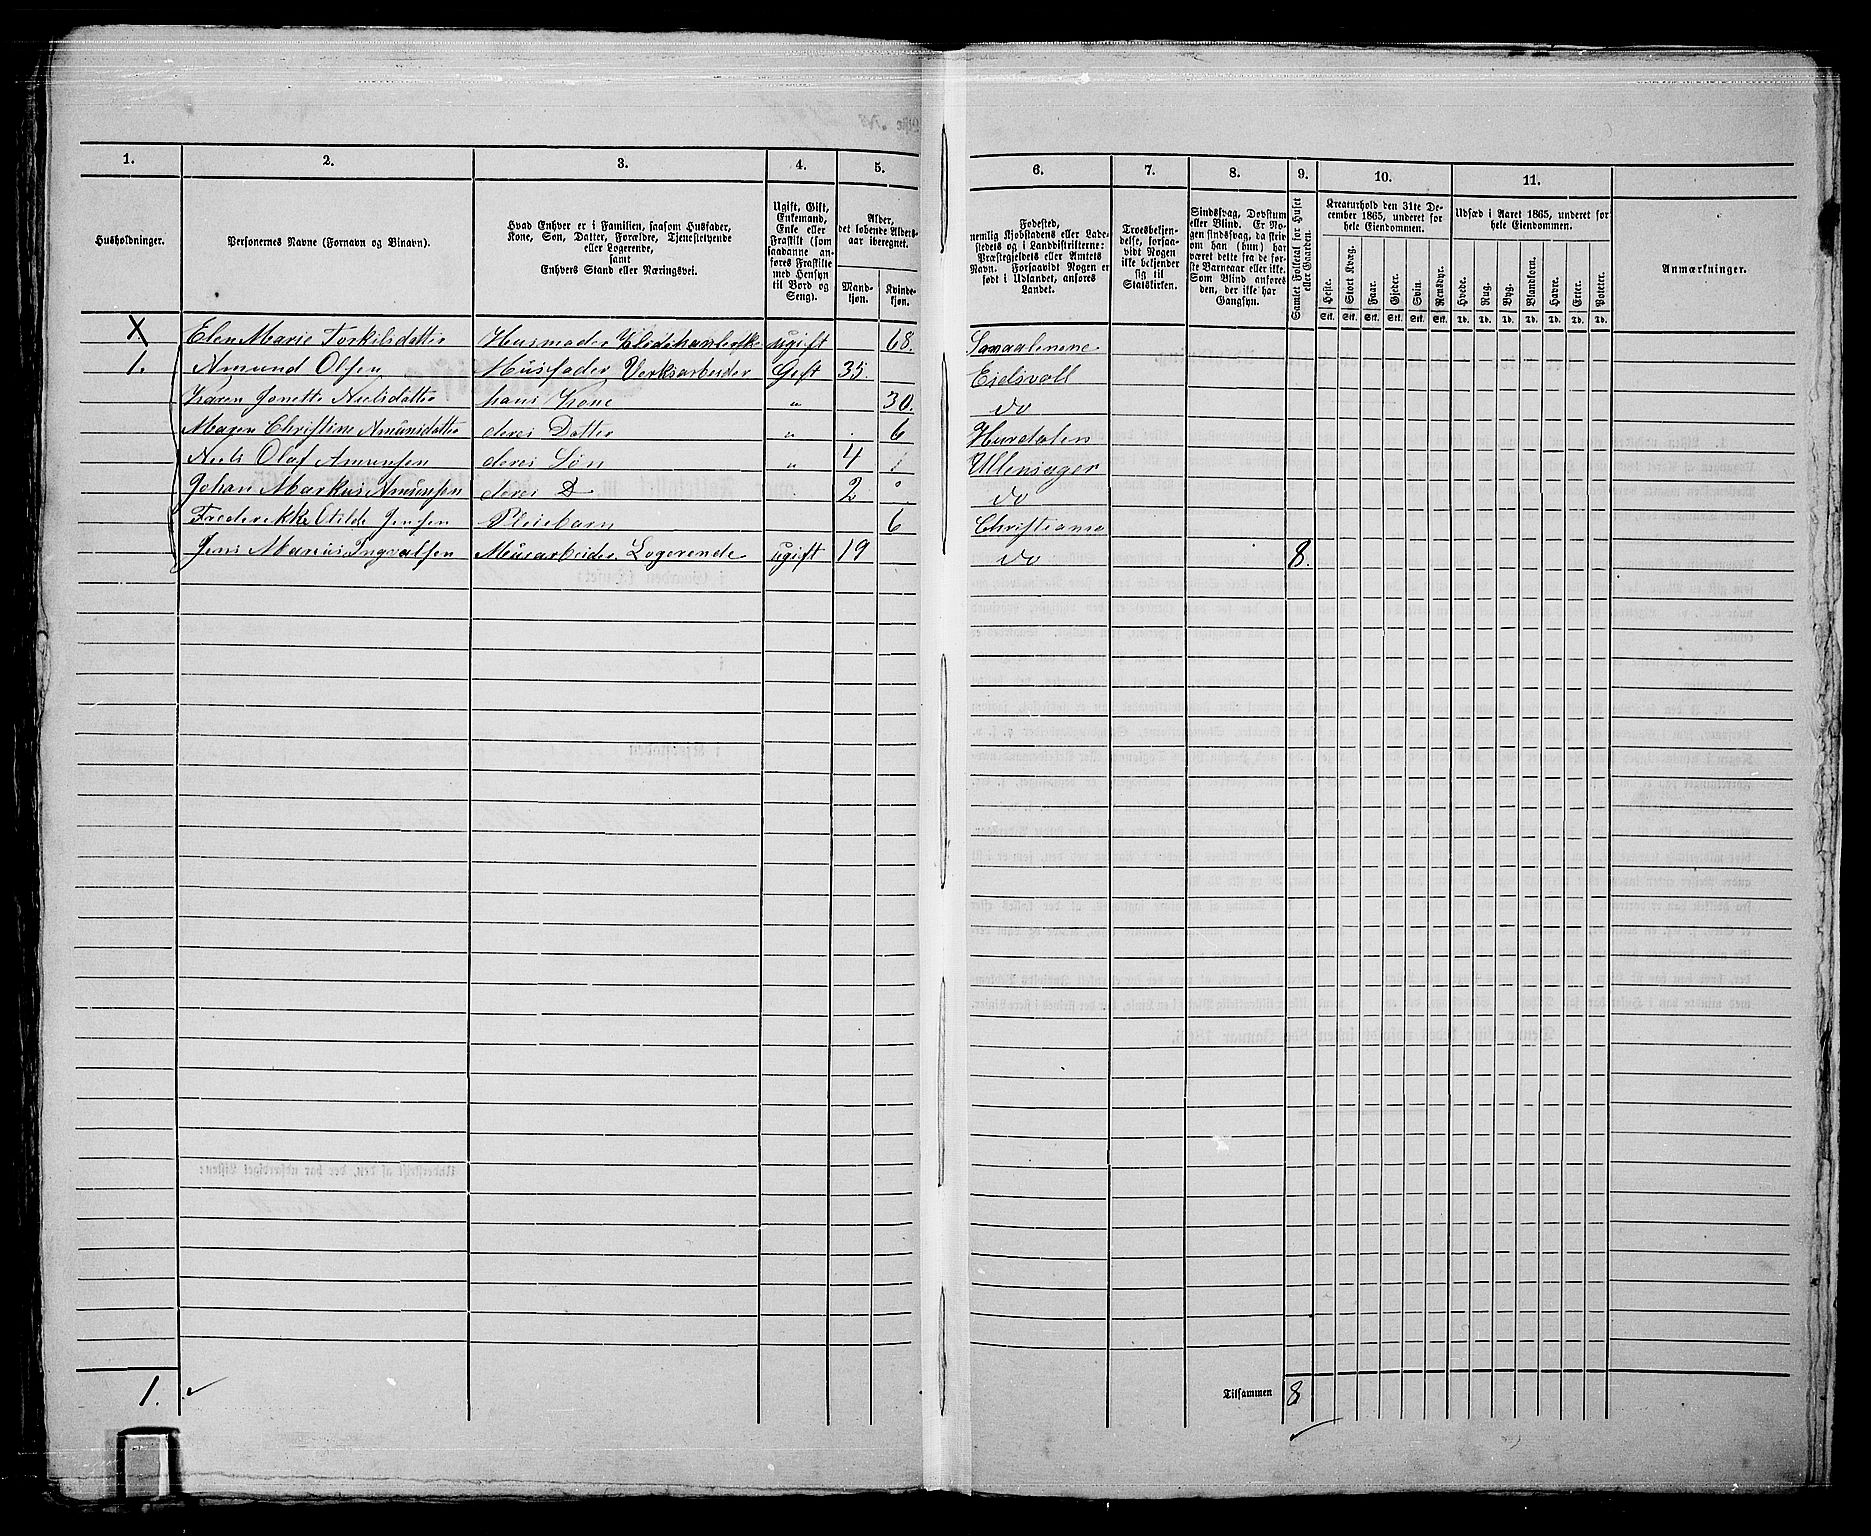 1. 2. 3. 4. 5. 6. 7. 8. 9. 10. 11.
Husholdninger.
Personernes Navne (Fornavn og Binavn).
Hvad Enhver er i Familien, saasom Husfader,
Kone, Søn, Datter, Forældre, Tjenestetyende
eller Logerende,
samt
Enhvers Stand eller Næringsvei.
Ugift, Gift,
Enkemand,
Enke eller
Fraskilt (som
saadanne an-
føres Fraskilte
med Hensyn
til Bord og
Seng).
Alder,
det løbende Alders-
aar iberegnet.
Mand-
kjøn.
Kvinde-
kjøn.
Fødested,
nemlig Kjøbstadens eller Lade-
stedets og i Landdistrikterne:
Præstegjeldets eller Amtets
Navn. Forsaavidt Nogen er
født i Udlandet, anføres
Landet.
Troesbekjen-
delse, forsaa-
vidt Nogen
ikke bekjender
sig til
Statskirken.
Sindssvag, Døvstum
eller Blind. Er No-
gen sindssvag, da skriv
om han (hun) har
været dette fra de før-
ste Barneaar eller ikke.
Som Blind anføres
den, der ikke har
Gangsyn.
Samlet Folketal for Huset
eller Gaarden.
Kreaturhold den 31te De-
cember 1865, underet for
hele Eiendommen.
Heste. Stort Kvæg. Faar. Gjeder. Svin. Rensdyr.
Stk. Stk. Stk. Stk. Stk. Stk.
Udsæd i Aaret 1865, underet for
hele Eiendommen.
Hvede. Rug. Byg. Blandkorn. Havre. Erter. Poteter.
Td. Td. Td. Td. Td. Td. Td.
Anmærkninger.
X Elen Marie Torkilsdatter Husmoder ugift 68. Smaalenene
1. Amund Olsen Husfader Verksarbeider Gift 35. Eidsvoll
Karen Jonette Nielsdatter hans Kone " 30. do
Maren Christine Amunsdatter deres Datter " 6 Hurdalen
Niels Olaf Amunsen deres Søn " 4 Ullensager
Johan Markus Amunsen deres D 2 " do
Frederikke Otilde Jensen Pleiebarn 6 Christiania
Jens Marius Ingvalsen Murarbeider Logerende ugift 19 do 8.
1. Tilsammen 8